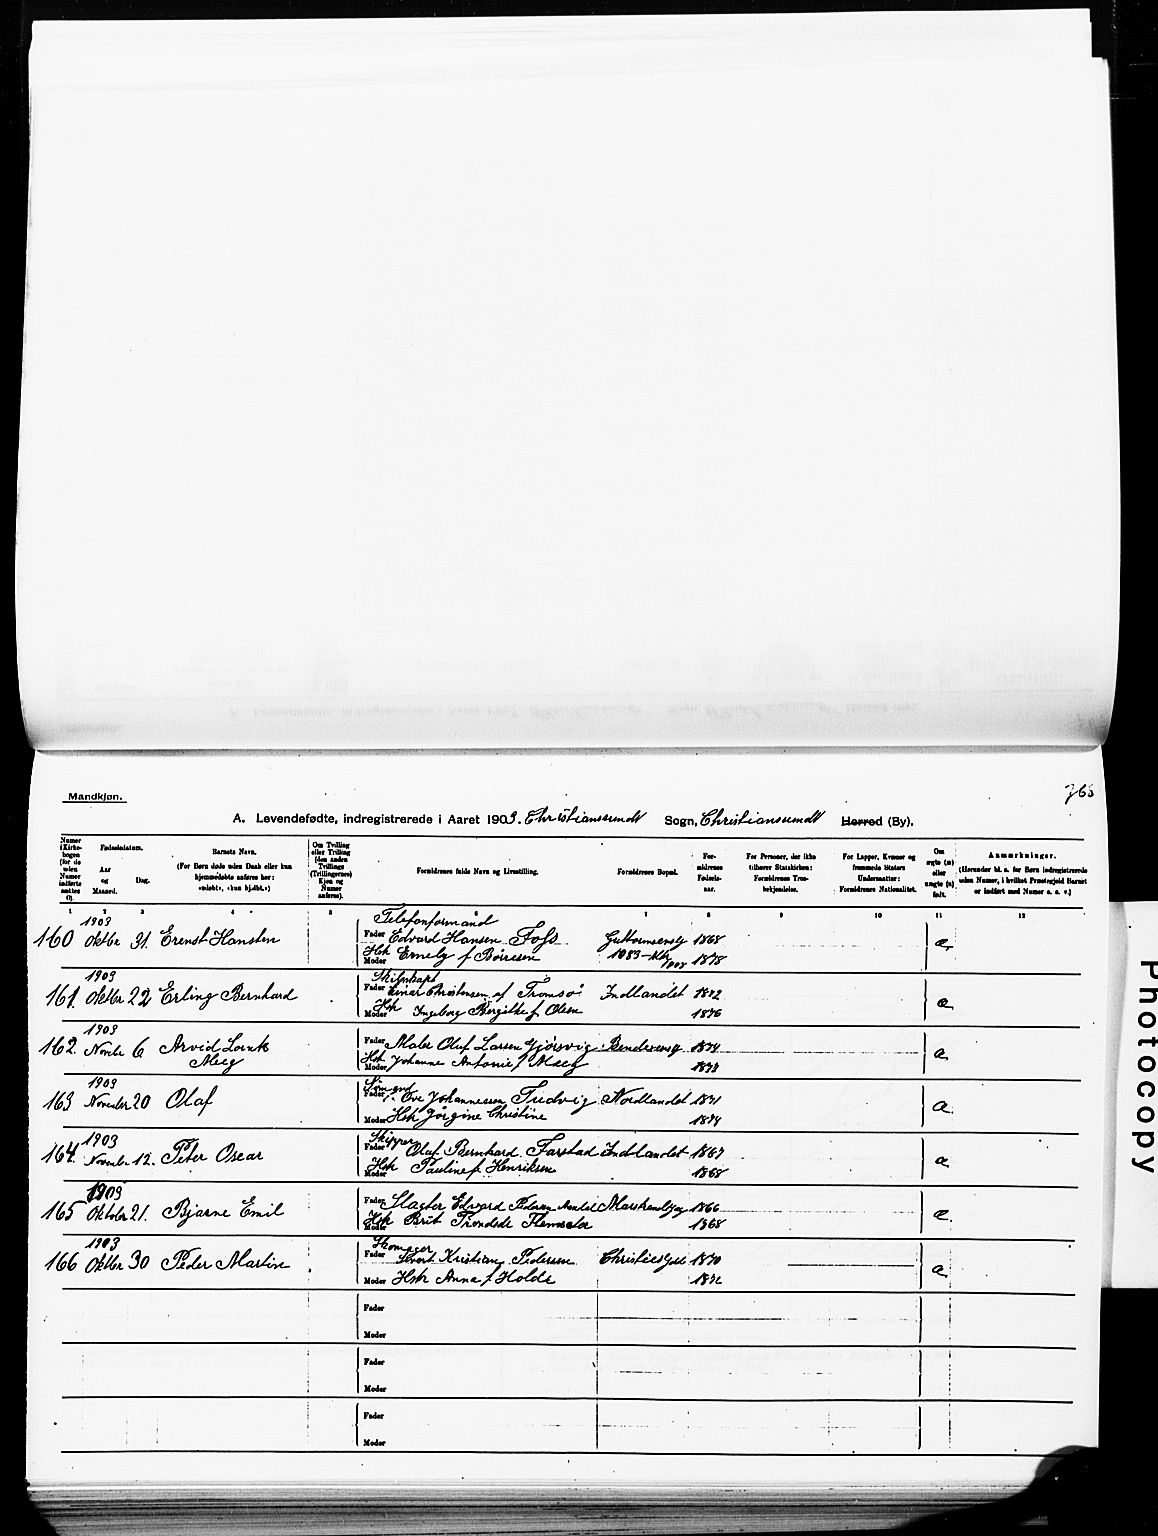 Mandkjøn.
A. Levendefødte, indregistrerede i Aaret 1903. Christianssundt Sogn, Christianssundt Herred (By).
Numer i Kirkebogen (for de uden Numer indførte sættes 0).
Fødselsdatum.
Aar og Maaned.
Dag.
Barnets Navn.
(For Børn døde uden Daab eller kun hjemmedøbte anføres her: »udøbt«, »kun hj.dbt.«)
Om Tvilling eller Trilling (den anden Tvillings (Trillingernes) Kjøn og Numer anføres).
Forældrenes fulde Navn og Livsstilling.
Forældrenes Bopæl.
Forældrenes Fødselsaar.
For Personer, der ikke tilhører Statskirken: Forældrenes Trosbekjendelse.
For Lapper, Kvæner og fremmede Staters Undersaatter: Forældrenes Nationalitet.
Om ægte (æ) eller uægte (u) født.
Anmærkninger.
(Herunder bl. a. for Børn indregistrerede uden Numer, i hvilket Præstegjeld Barnet er indført med Numer o. s. v.)
1 2 3 4 5 6 7 8 9 10 11 12
1903 Telefonformand
160 Oktbr 31. Erenst Hansten Fader Edvard Hansen Foss Guttormsensg 1868 æ.
Hsk Moder Emely f. Børresen 1083 1878
1903 Skibskapt
161. Oktbr 22 Erling Bernhard Fader Einar Christensen af Tromsø Indlandet 1872 æ
Hsk Moder Ingeborg Bergitte f. Olsen 1876
1903
162. Novbr 6 Arvid Fader Maler Oluf Larsen Gjørsvig 1874 æ
Hsk Moder Johanne Antonie f.
1903 Sømand
163 November 20 Olaf Fader Ove Johannessen Nordlandet 1871 æ.
Moder Hsk Jørgine Christine 1874
1903 Skipper
164. November 12. Peter Oscar Fader Oluf Bernhard Farstad Indlandet 1867 æ
Hsk Moder Pauline f. Henriksen 1868
1903
165 Oktober 21. Bjarne Emil Fader Slagter Edvard Pedersen 1866 æ.
Hsk Moder Brit 1868
1903
166 Oktbr 30 Peder Martin Fader Sivert Kristian Pedersen 1870 æ
Moder Hsk Anna f. Holde
Fader
Moder
Fader
Moder
Fader
Moder
Photocopy